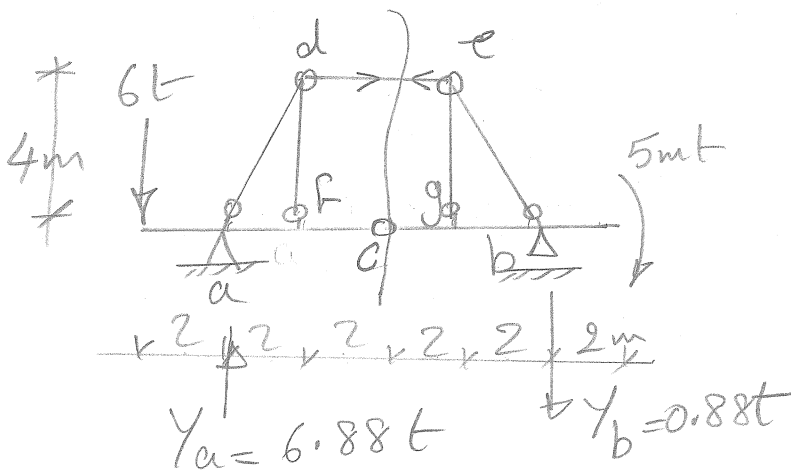 d e
6t
4m
5mt
f g
c b
a
2 2 2 2 2 2m
Ya= 6.88t
Yb=0.88t